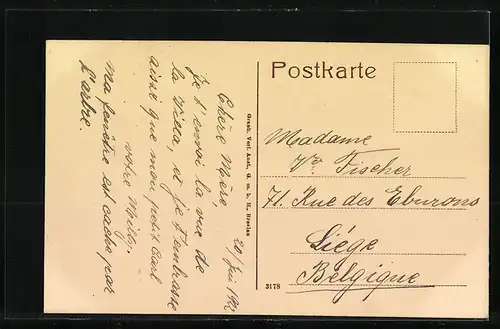 Postkarte
Madame
Vve Fischer
71. Rue des Eburons
Liége
Belgique
3178
Graph. Verl. Anst., G. m. b. H., Breslau
Chère Mère
je t'envoi la vue de
la Villa, et je t'embrasse
ainsi que mon petit
votre
ma fenêtre est cachée par
l'arbre.